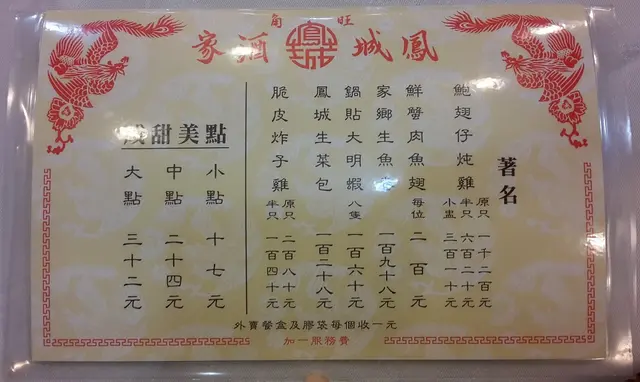 旺角
鳳城酒家
著名
鮑翅仔炖雞 原只 一千二百元
半只 六百二十元
小盅 三百一十元
鮮蟹肉魚翅 每位 二百元
家鄉生魚 一百九十八元
鍋貼大明蝦 八隻 一百六十元
鳳城生菜包 一百二十八元
脆皮炸子雞 原只 二百八十元
半只 一百四十元
甜美點
小點 十七元
中點 二十四元
大點 三十二元
外賣餐盒及膠袋每個收一元
加一服務費